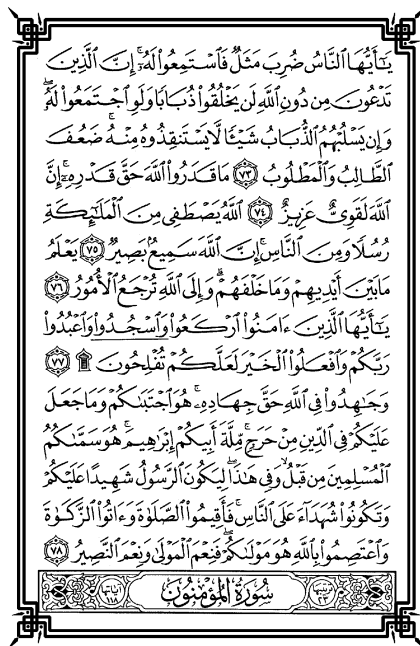 يَٰٓأَيُّهَا ٱلنَّاسُ ضُرِبَ مَثَلٞ فَٱسۡتَمِعُواْ لَهُۥٓۚ إِنَّ ٱلَّذِينَ
تَدۡعُونَ مِن دُونِ ٱللَّهِ لَن يَخۡلُقُواْ ذُبَابٗا وَلَوِ ٱجۡتَمَعُواْ لَهُۥۖ
وَإِن يَسۡلُبۡهُمُ ٱلذُّبَابُ شَيۡـٔٗا لَّا يَسۡتَنقِذُوهُ مِنۡهُۚ ضَعُفَ
ٱلطَّالِبُ وَٱلۡمَطۡلُوبُ ٧٣ مَا قَدَرُواْ ٱللَّهَ حَقَّ قَدۡرِهِۦٓۚ إِنَّ
ٱللَّهَ لَقَوِيٌّ عَزِيزٌ ٧٤ ٱللَّهُ يَصۡطَفِي مِنَ ٱلۡمَلَٰٓئِكَةِ
رُسُلٗا وَمِنَ ٱلنَّاسِۚ إِنَّ ٱللَّهَ سَمِيعُۢ بَصِيرٞ ٧٥ يَعۡلَمُ
مَا بَيۡنَ أَيۡدِيهِمۡ وَمَا خَلۡفَهُمۡۚ وَإِلَى ٱللَّهِ تُرۡجَعُ ٱلۡأُمُورُ ٧٦
يَٰٓأَيُّهَا ٱلَّذِينَ ءَامَنُواْ ٱرۡكَعُواْ وَٱسۡجُدُواْ وَٱعۡبُدُواْ
رَبَّكُمۡ وَٱفۡعَلُواْ ٱلۡخَيۡرَ لَعَلَّكُمۡ تُفۡلِحُونَ ۩ ٧٧
وَجَٰهِدُواْ فِي ٱللَّهِ حَقَّ جِهَادِهِۦۚ هُوَ ٱجۡتَبَىٰكُمۡ وَمَا جَعَلَ
عَلَيۡكُمۡ فِي ٱلدِّينِ مِنۡ حَرَجٖۚ مِّلَّةَ أَبِيكُمۡ إِبۡرَٰهِيمَۚ هُوَ سَمَّىٰكُمُ
ٱلۡمُسۡلِمِينَ مِن قَبۡلُ وَفِي هَٰذَا لِيَكُونَ ٱلرَّسُولُ شَهِيدًا عَلَيۡكُمۡ
وَتَكُونُواْ شُهَدَآءَ عَلَى ٱلنَّاسِۚ فَأَقِيمُواْ ٱلصَّلَوٰةَ وَءَاتُواْ ٱلزَّكَوٰةَ
وَٱعۡتَصِمُواْ بِٱللَّهِ هُوَ مَوۡلَىٰكُمۡۖ فَنِعۡمَ ٱلۡمَوۡلَىٰ وَنِعۡمَ ٱلنَّصِيرُ ٧٨
ترتيبها ٢٣ سُورَةُ المُؤْمِنُونَ آياتها ١١٨